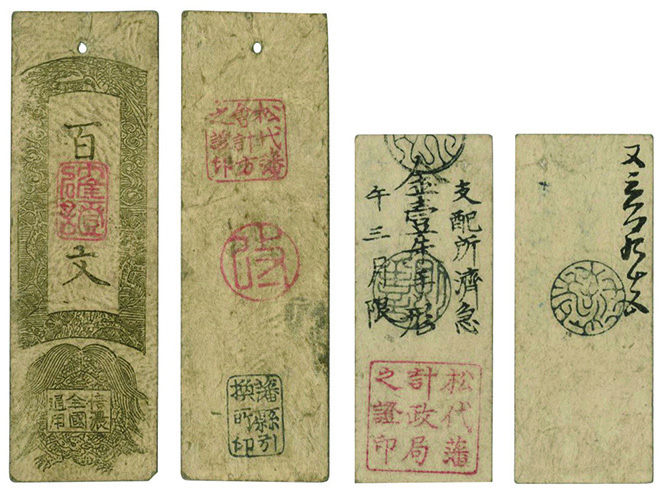 百
確證
文
信濃
全國
通用
松代藩
會計方
之證印
藩縣引
換所印
支配所濟急
金壹朱手形
午三月限
松代藩
計政局
之證印